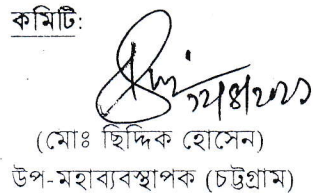 কমিটি:
(মোঃ ছিদ্দিক হোসেন)
উপ-মহাব্যবস্থাপক (চট্টগ্রাম)